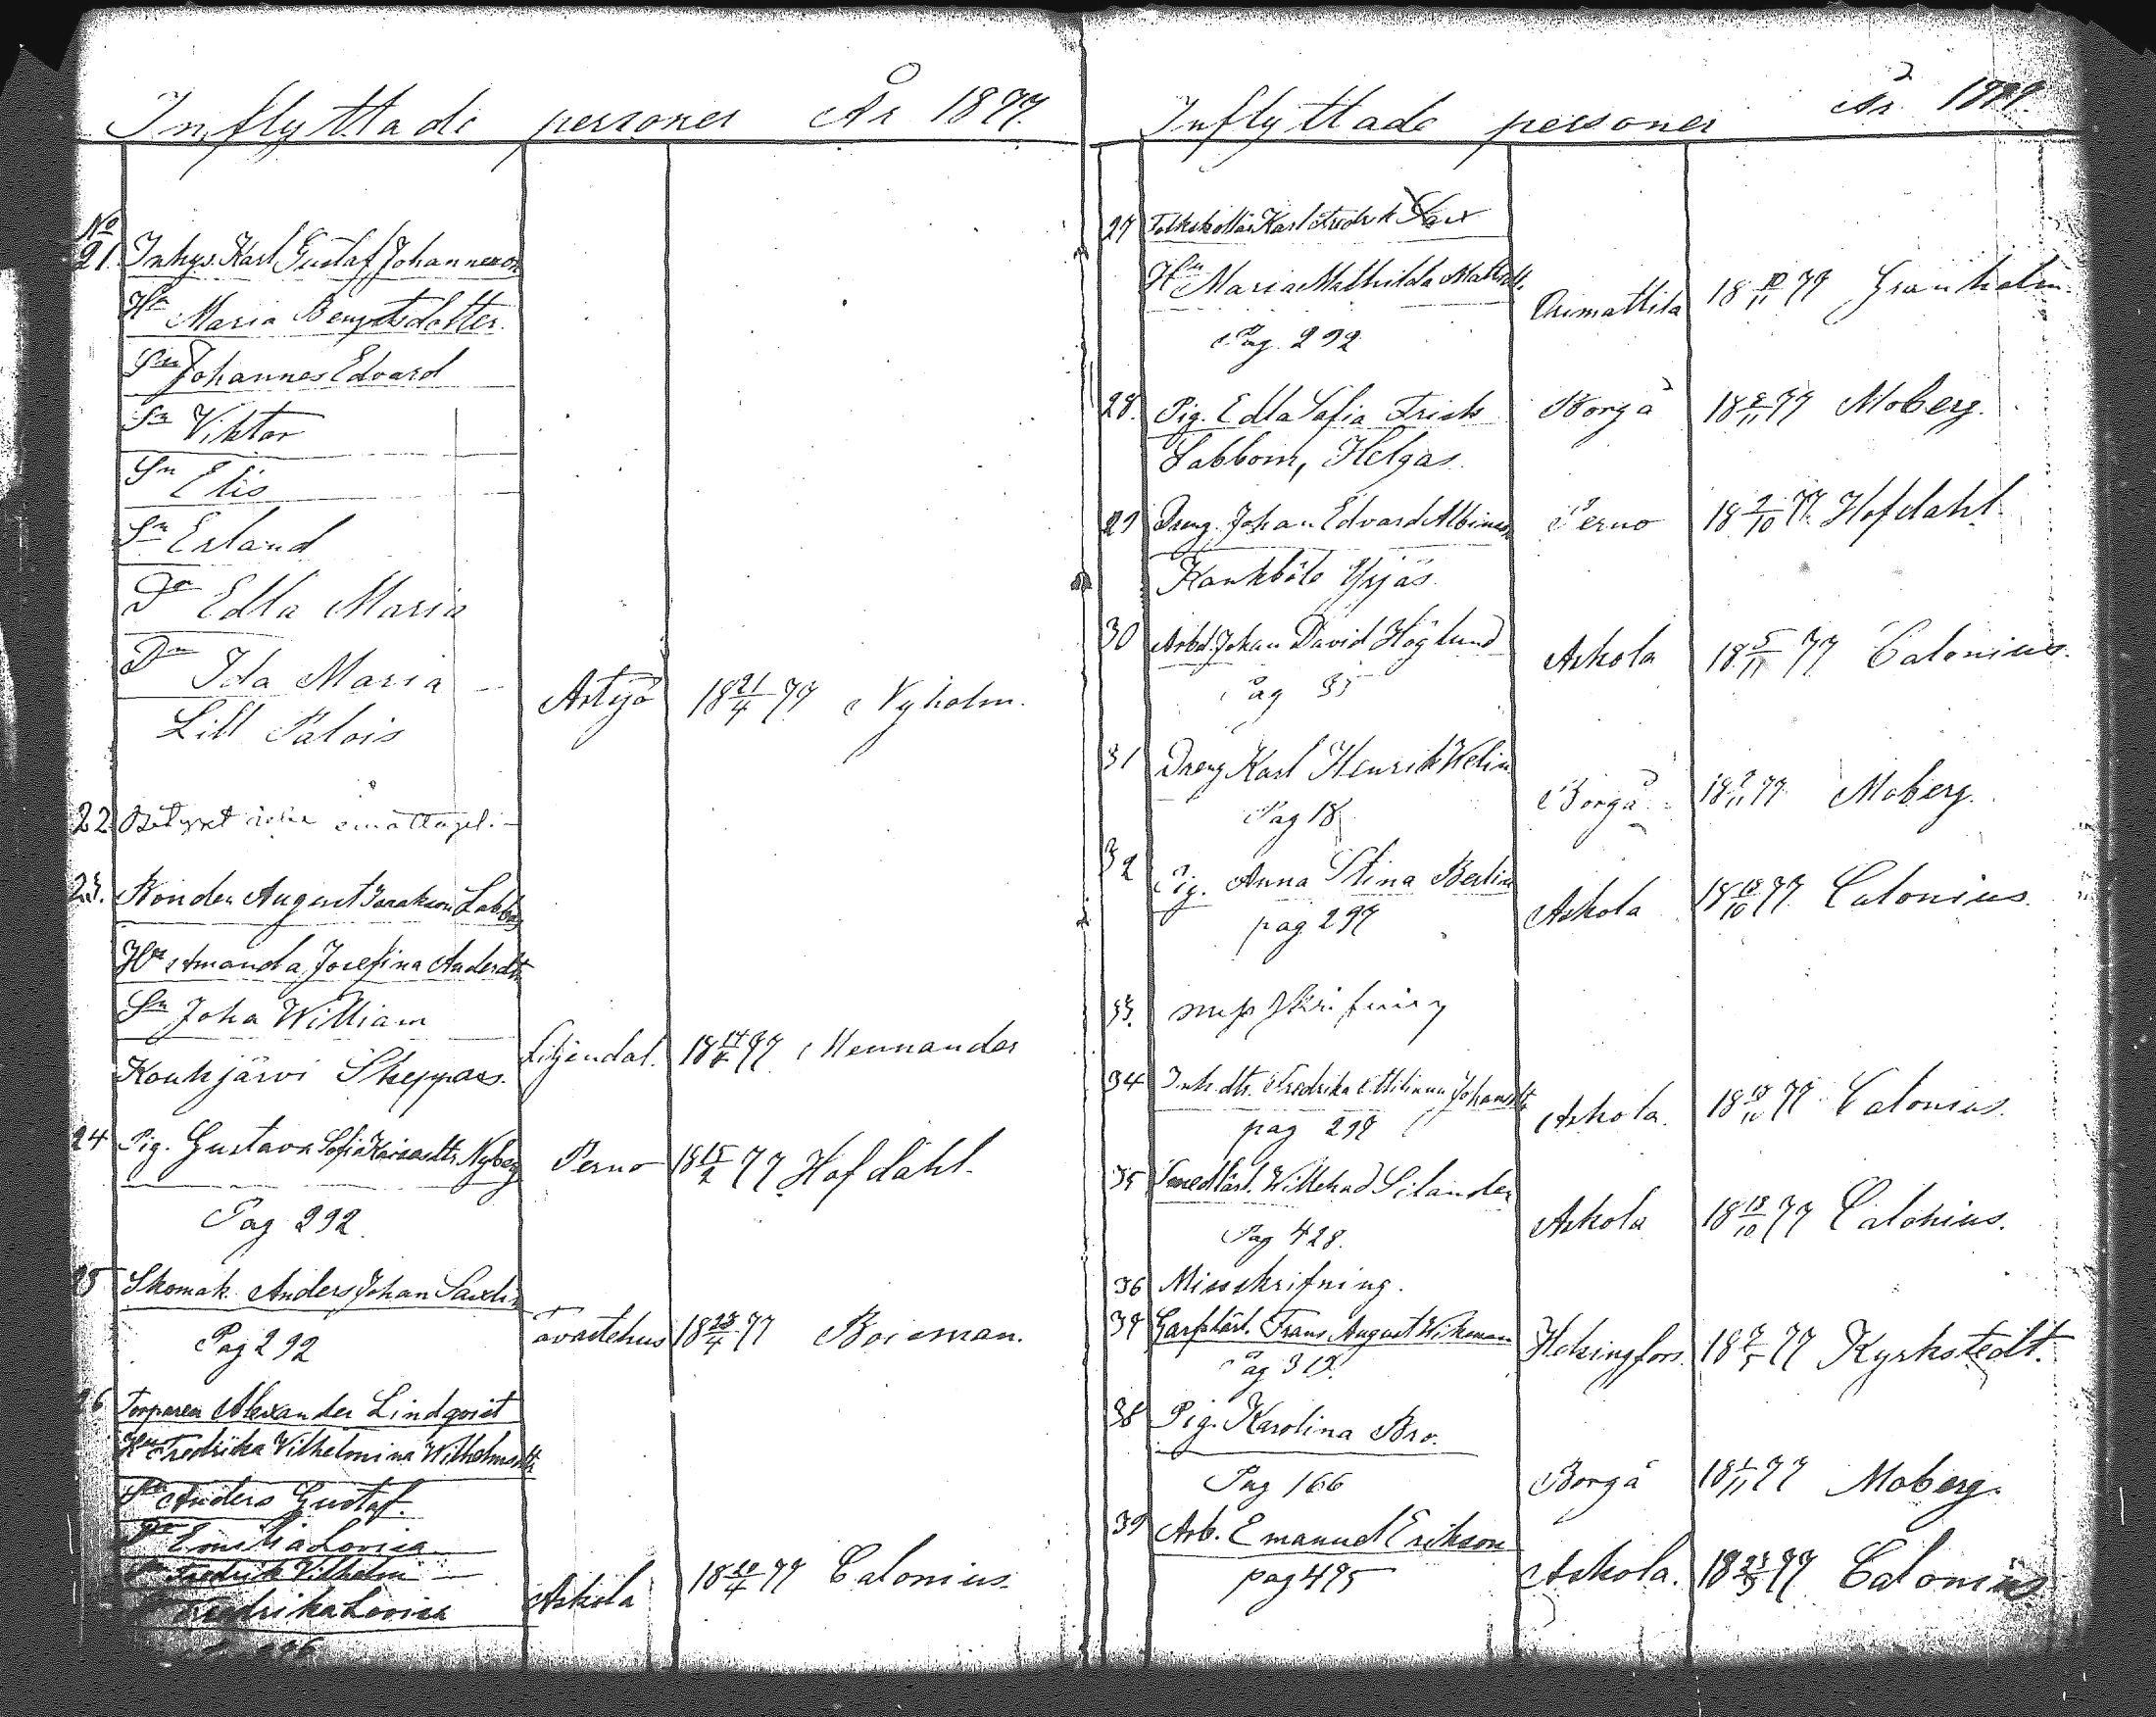 Inflyttade personer År 1877.
No
21. Inhys Karl Gustaf Johannesson
Hu Maria Bengtsdotter
Sn Johannes Edvard
Sn Viktor
Sn Elis
Sn Erland
Dr Edla Maria
Dr Ida Maria
Lill Palois Artsjö 18 21/4 77 Nyholm.
22 Betyget emottaget.
23. Bonden August Isaksson Labbas
Hu Amanda Josefina Andersdtr
Sn Joha William
Koukjärvi Skeppars. Liljendal. 18 14/ 77 Mennander
24 Pig. Gustava Sofia Nyberg Perno 18 15/2 77 Hofdahl.
Pag 292.
25 Skomak. Anders Johan Saxlin
Pag 292 Tavastehus 18 28/4 77 Boisman.
26 Torparen Alexander Lindqvist
Hu Fredrika Vilhelmina Wilhelmsdtr
Sn Anders Gustaf.
Dr Emilia Lovisa
Sn Fredrik Vilhelm
Dr Fredrika Lovisa
Askola 18 20/4 77 Calonius.
Inflyttade personer År 1877.
27 Karl Fredrik
Hu Maria Mathilda
Pag. 292 Orimattila 18 10/11 77 Granholm.
28. Pig. Edla Sofia Frisk Borgå 18 2/11 77 Moberg.
Labbom, Helgas.
29 Dreng. Johan Edvard Albinus Perno 18 2/10 77 Hofdahl
Kankböle Yrjäs.
30 Arbd. Johan David Höglund Askola 18 5/11 77 Calonius.
Pag 35
31 Dreng Karl Henrik Welin
Pag 18 Borgå 18 2/11 77 Moberg.
32 Pig. Anna Stina Berlin
pag 297 Askola 18 18/10 77 Calonius.
33. missskrifning
34 Inh. dtr. Fredrika Johansdtr
pag 297 Askola. 18 18/10 77 Calonius.
35 Smedlärl. Willehad Silander
Pag 428. Askola 18 18/10 77 Calonius.
36 Missskrifning.
37 Garfvlärl. Frans August Wikman
Pag 312. Helsingfors. 18 2/5 77 Kyrkstedt.
38 Pig. Karolina Bro.
Pag 166 Borgå 18 1/11 77 Moberg.
39 Arb. Emanuel Erikson
pag 495 Askola. 18 23/ 77 Calonius.